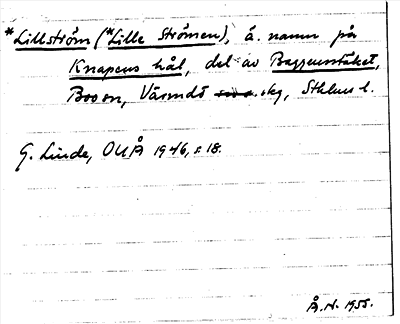 *Lillström (*Lille Strömen), ä. namn på
Knapens hål, del av Baggensstäket,
Boo sn, Värmdö skg, Sthlms l.
G. Linde, OUÅ 1946, s. 18.
Å. N. 1955.